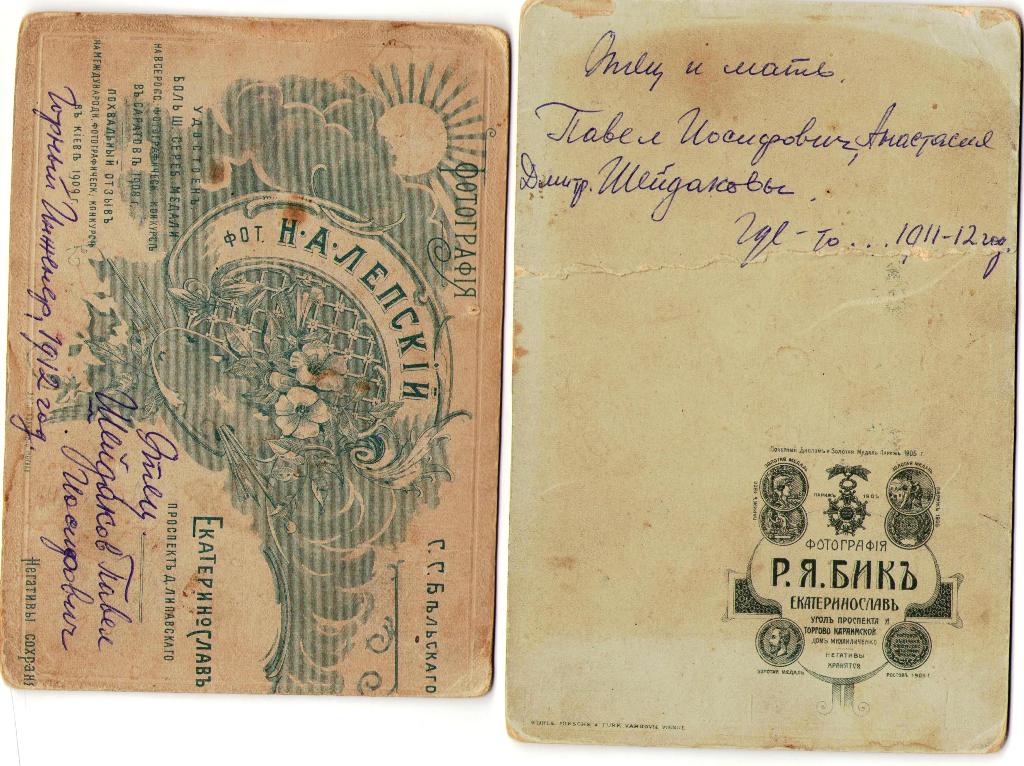 ФОТОГРАФІЯ
С. С. БѢЛЬСКАГО
ФОТ. Н·А·ЛЕПСКІЙ
УДОСТОЕНЪ
БОЛЬШ. СЕРЕБ. МЕДАЛИ
НА ВСЕРОС. ФОТОГРАФИЧЕСК. КОНКУРСѢ
ВЪ САРАТОВѢ 1908 г.
ПОХВАЛЬНЫЙ ОТЗЫВЪ
НА МЕЖДУНАРОДН. ФОТОГРАФИЧЕСК. КОНКУРСѢ
ВЪ КІЕВѢ 1909 г.
ЕКАТЕРИНОСЛАВЪ
ПРОСПЕКТЪ Д. ЛИПАВСКАГО
Негативы сохран
Отец
Шейдаков Павел
Иосифович
Горный Инженер, 1912 год.
Отец и мать.
Павел Иосифович, Анастасия
Дмитр. Шейдаковы
Где-то... 1911-12 год.
Почетный Дипломъ и Золотая Медаль Парижъ 1905 г.
ЗОЛОТАЯ МЕДАЛЬ
ЗОЛОТАЯ МЕДАЛЬ
ПАРИЖЪ 1905
ПАРИЖЪ 1905
ФОТОГРАФІЯ
Р.Я.БИКЪ
ЕКАТЕРИНОСЛАВЪ
УГОЛЪ ПРОСПЕКТА И
ТОРГОВО КАРАИМСКОЙ
ДОМЪ МИХАЙЛИЧЕНКО
НЕГАТИВЫ
ХРАНЯТСЯ
ЗОЛОТАЯ МЕДАЛЬ
РОСТОВЪ